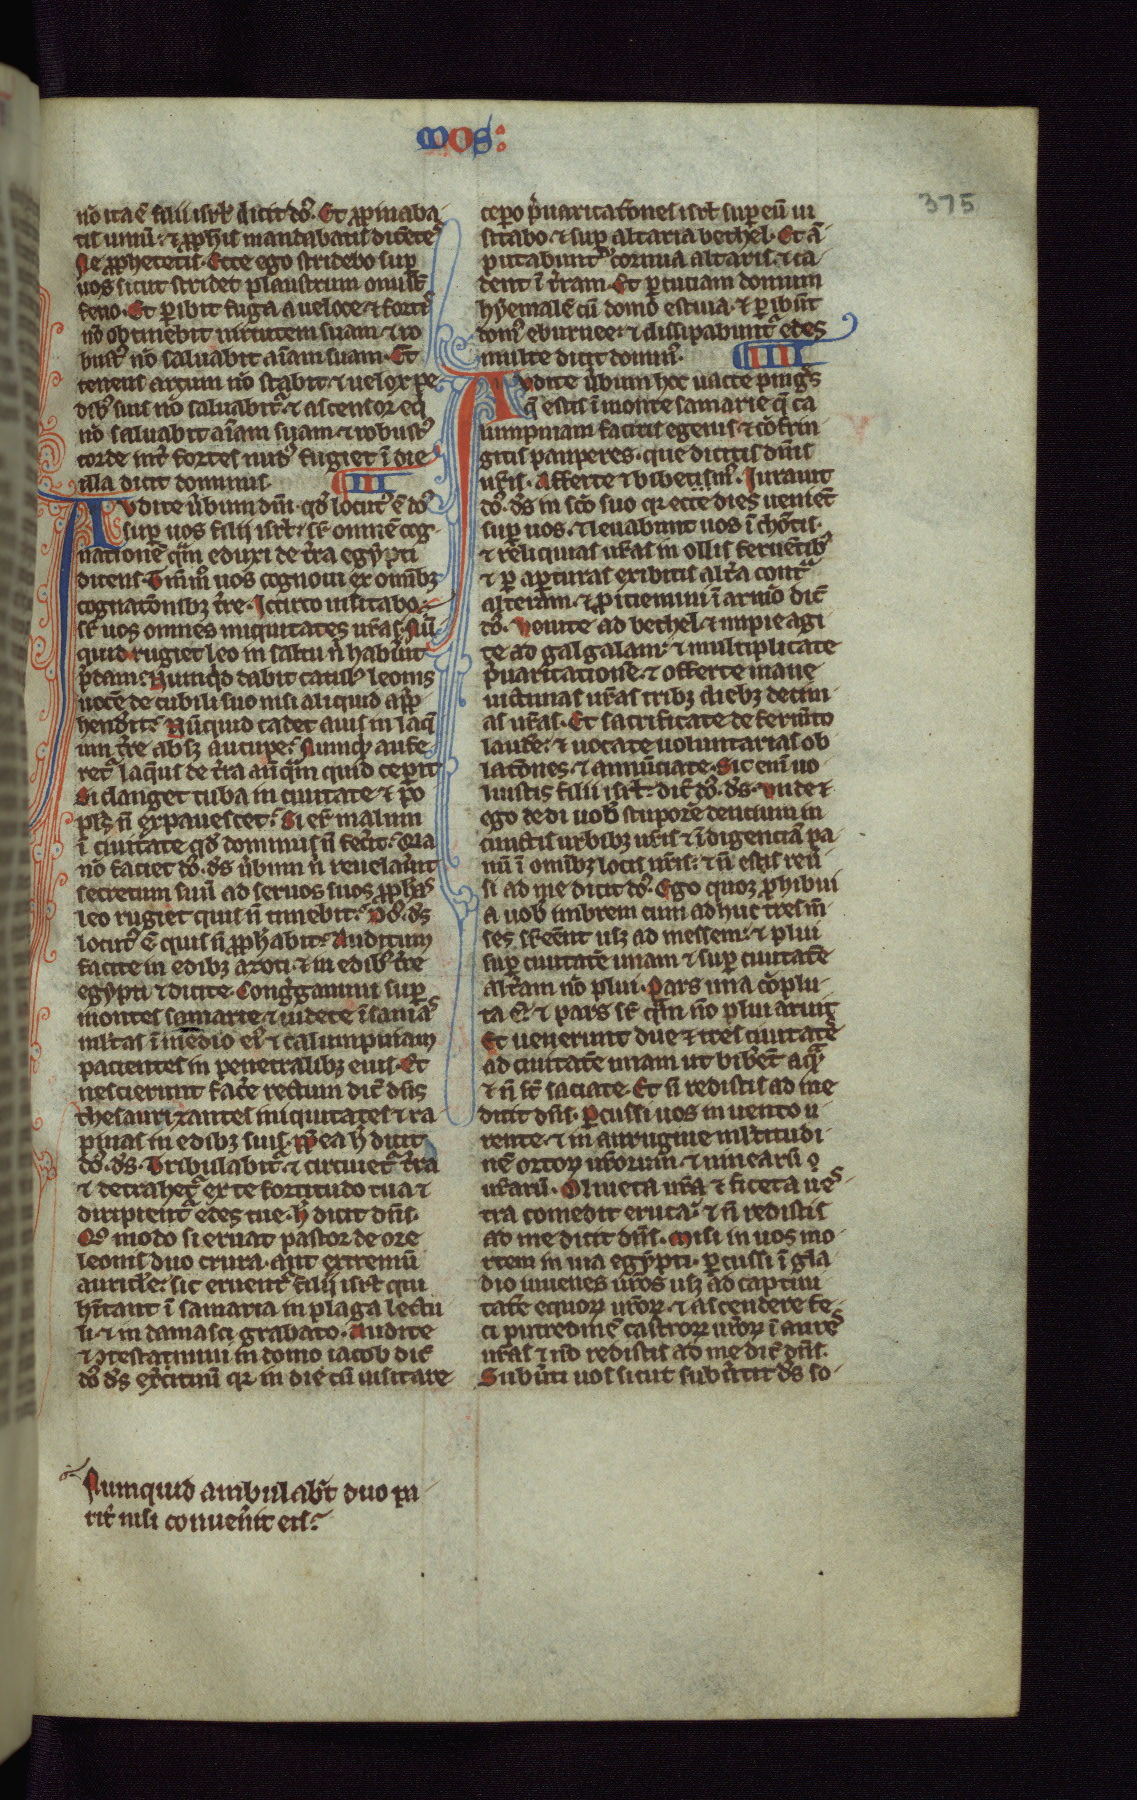 mos:
375
nō ita ē filii isrł dicit dō̄s. Et ꝓpinaba
tis uinū: ⁊ ꝓphis mandabatis dicētes
Ne ꝓphetetis. Ecce ego stridebo sup
uos sicut stridet plaustrum onustū
feno. Et ꝑibit fuga a ueloce ⁊ fortis
nō obtinebit uirtutem suam ⁊ ro
bustꝰ nō saluabit aīam suam. Et
tenens arcum nō stabit ⁊ uelox pe
dibꝰ suis nō saluabitᷣ ⁊ ascensor eq̇
nō saluabit aīam suam ⁊ robustꝰ
corde int̄ fortes nudꝰ fugiet ī die
illa dicit dominus.
III
Audite ūbum dn̄i qd̄ locutꝰ ē dō̄s
sup uos filii isrł. sr̄ omnē cog
nationē quā eduxi de t̄ra egypti
dicens. Tm̄mō uos cognoui ex omībꝫ
cognatōnibꝫ t̄re. Icirco uisitabo
sr̄ uos omnes iniquitates ur̄as. Nū
quid rugiet leo in saltu n̄ habūit
p̄dam: Numqd̄ dabit catulꝰ leonis
uocē de cubili suo nisi aliquid app̄
hendit: Nūquid cadet auis in laq̄
um t̄re absꝫ aucupe: Numqd̄ aufe
retᷣ laq̄us de t̄ra anq̄m quid ceperit
Si clanget tuba in ciuitate ⁊ pō
pls̄ n̄ expauescet: Si er̄ malum
ī ciuitate qd̄ dominus n̄ fecit: Qia
nō faciet dō̄s. ds̄ ūbum n̄ reuelaūit
secretum suū ad seruos suos ꝓphās
leo rugiet quis n̄ timebit: Dō̄s. ds̄
locutꝰ ē quis n̄ ꝓphabit: Auditum
facite in edibꝫ azoti ⁊ in edibꝰ t̄re
egypti ⁊ dicite. Congᷓgamini sup
montes samarie ⁊ uidete īsanias
ml̄tas ī medio eiꝰ ⁊ calumpniam
pacientes in penetralibꝫ eius. Et
nescierunt facēre rectum dic̄ dn̄s
thesaurizantes iniquitates ⁊ ra
pinas in edibꝫ suis. ꝓpt̄ea h̄ dicit
dō̄s. ds̄. Tribulabitᷣ ⁊ circuietᷣ t̄ra
⁊ detrahetᷣ ex te fortitudo tua ⁊
diripientᷣ edes tue. h̄ dicit dn̄s.
Quo modo si eruat pastor de ore
leonis duo crura. aut extremū
auricl̄e: sic eruentᷣ filii isrł qui
hītant ī samaria in plaga lectu
li ⁊ in damasci grabato. Audite
⁊ ↄtestamini in domo iacob dic̄
dō̄s ds̄ exc̄ituū qr̄ in die cū uisitare
cepo p̄uaricatōnes isrł sup eū ui
sitabo ⁊ sup altaria bethel. Et ā
putabuntᷣ cornua altaris ⁊ ca
dent ī t̄ram. Et ꝑcutiam domum
hyemalē cū domo estiua ⁊ ꝑibūt
domꝰ eburnee: ⁊ dissipabuntᷣ edes
multe dicit dominꝰ.
IIII
Audite ūbum hoc uacce pingᷣs
q̄ estis ī monte samarie q̄ ca
lumpniam facitis egenis ⁊ cōfrin
gitis pauperes. que dicitis dn̄is
ur̄is. Afferte ⁊ bibemus. Iurauit
dō̄s. ds̄ in scō suo qr̄ ecce dies ueniēt
sup uos. ⁊ leuabunt uos ī chontis.
⁊ reliquias ur̄as in ollis feruētibꝰ
⁊ ꝑ apturas exibitis alt̄a contᷓ
alteram. ⁊ ꝓiciemini ī armō dic̄
dō̄s. Venite ad bethel ⁊ impie agi
te ad galgalam: ⁊ multiplicate
p̄uaritationē. ⁊ offerte mane
uictimas ur̄as tribꝫ diebꝫ decim
as ur̄as. Et sacrificate de fermēto
laudē: ⁊ uocate uoluntarias ob
latōnes. ⁊ annūciate. Sic enī uo
luistis filii isrł. dic̄ dō̄s. ds̄. Vnde ⁊
ego dedi uob̄ stuporē dencium in
cunctis urbibꝫ ur̄is ⁊ īdigenciā pa
nū ī omībꝫ locis ur̄is: ⁊ n̄ estis reū
si ad me dicit dō̄s. Ego quoqꝫ ꝓhibui
a uob̄ imbrem cum adhuc tres m̄
ses sr̄eēnt usqꝫ ad messem: ⁊ plui
sup ciuitatē unam ⁊ sup ciuitatē
alt̄am nō plui. Pars una cōplu
ta ē. ⁊ pars sr̄ quā nō plui aruit
Et uenerunt due ⁊ tres ciuitates
ad ciuitatē unam ut biberēt aquā
⁊ n̄ st̄ saciate. Et n̄ redistis ad me
dicit dn̄s. Percussi uos in uento u
rente ⁊ in aurugine ml̄titudi
nē ortoꝝ ur̄orum ⁊ uinearū
ur̄arū. Oliueta ur̄a ⁊ ficeta ues
tra comedit eruca: ⁊ n̄ redistis
ad me dicit dn̄s. Misi in uos mo
rtem in uia egypti. ꝑcussi ī gla
dio iuuenes ur̄os usqꝫ ad captiui
tatē equoꝝ ur̄oꝝ. ⁊ ascendere fe
ci putredinē castroꝝ ur̄oꝝ ī nares
ur̄as ⁊ nō redistis ad me dic̄ dn̄s.
Subūti uos sicut subūtit ds̄ so
Numquid ambulabt̄ duo pa
rit̄ nisi conueūit eis: